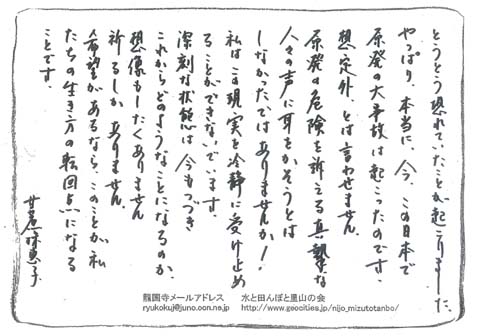 とうとう恐れていたことが起こりました。
やっぱり、本当に、今、この日本で
原発の大事故は起こったのです。
想定外、とは言わせません。
原発の危険を訴える真摯な
人々の声に耳をかそうとは
しなかったではありませんか！
私はこの現実を冷静に受け止め
ることができないでいます。
深刻な状態は今もつづき
これからどのようなことになるのか、
想像もしたくありません
祈るしかありません。
希望があるなら、このことが私
たちの生き方の転回点になる
ことです。
恵子
龍国寺メールアドレス
ryukokuj@juno.ocn.ne.jp
水と田んぼと里山の会
http://www.geocities.jp/nijo_mizutotanbo/